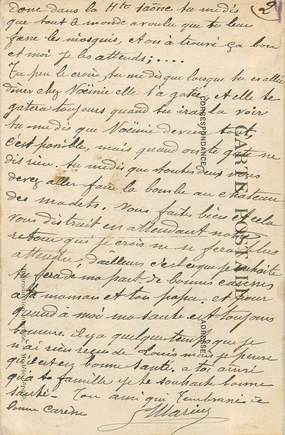 2
donc dans la Hte Saône tu me dis
que tout le monde a voulu que tu leur
fasse le mosquis, et on a trouvé ça bon
et moi je les attends;....
Tu peu le croire, tu me dis que lorsque tu es allée
diner chez Noémie elle t'a gatée, et elle te
gatera toujours quand tu iras la voir
tu me dis que Noémie
est possible, mais quand on te ne
dis rien. tu me dis que vous
devez aller faire la bombe au chateau
des madets. Vous faites bien et cela
vous distrait en attendant notre
retour que je crois ne se fera plus
attendre, d'ailleurs c'est ce que je souhaite
tu feras de ma part de bonnes caresses
a ta maman et ton papa. et pour
quand a moi ma santé est toujours
bonne. il y a quelques temps que je
n'ai rien reçu de Louis mais je pense
qu'il est en bonne santé. a toi ainsi
qu'a ta famille je te souhaite bonne
santé. Ton ami qui t'embrasse de
bonne caresse
Marius
CARTE POSTALE
CORRESPONDANCE
ADRESSE